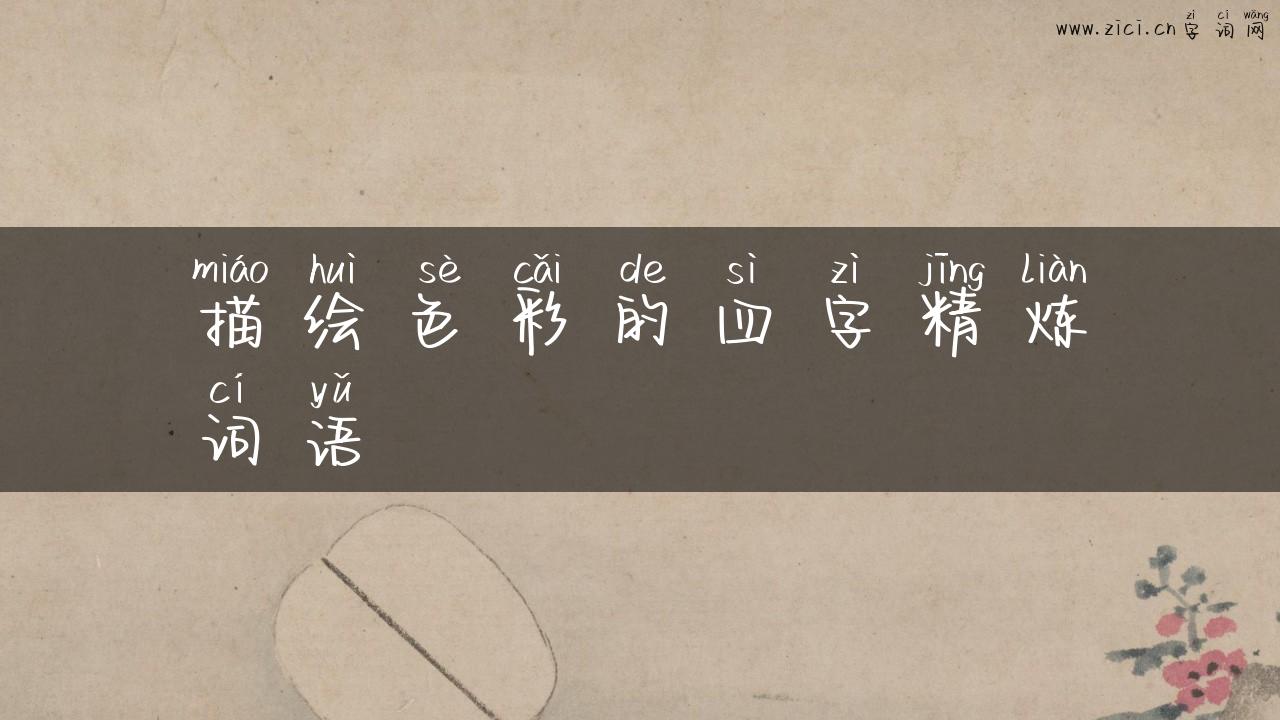 zì cí wǎng
www.zici.cn字词网
miáo huì sè cǎi de sì zì jīng liàn
描绘色彩的四字精炼
cí yǔ
词语